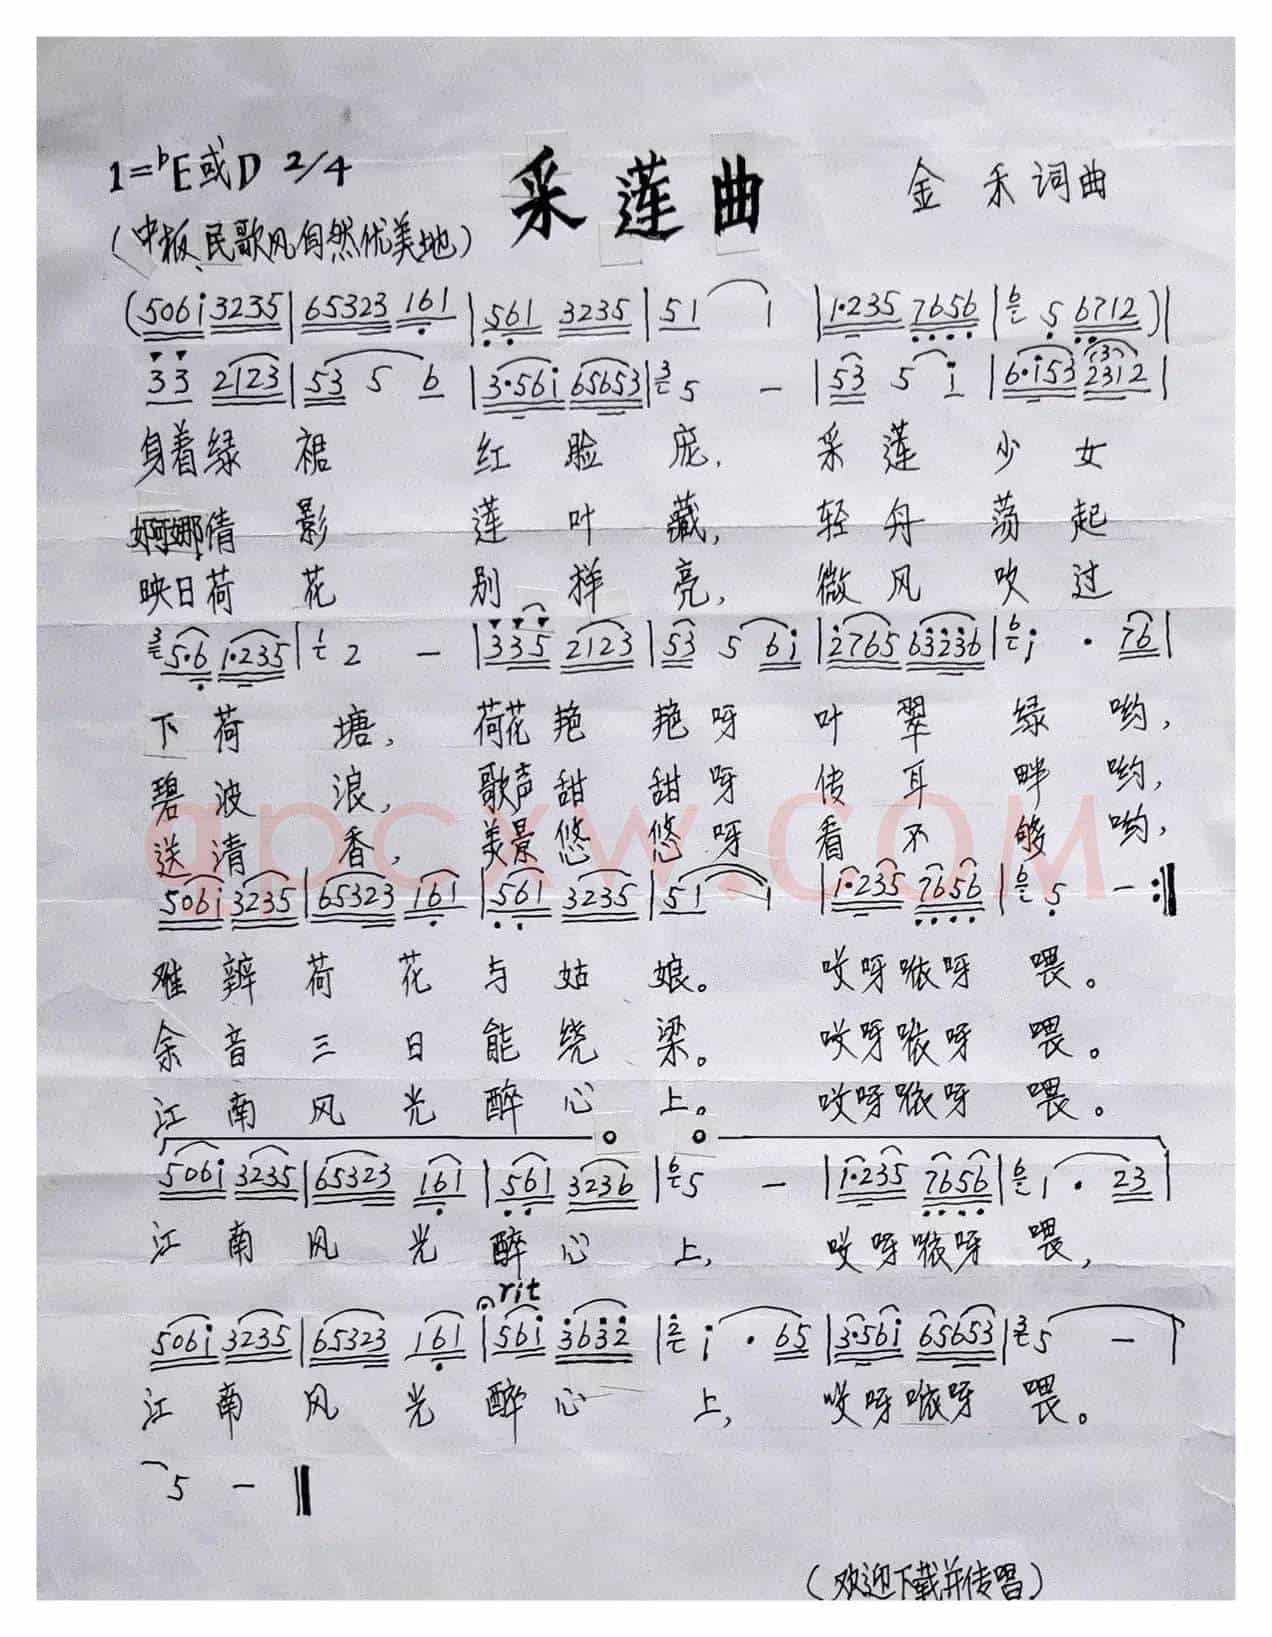 1=♭E或D 2/4
采莲曲
金禾词曲
(中板、民歌风自然优美地)
(506i 3235 | 65323 161 | 561 3235 | 51 1 | 1·235 7656 | 6 5 6712 )|
3 3 2123 | 53 5 6 | 3·56i 65653 | 3 5 — | 53 5 i | 6·i53 2312 |
身着绿裙 红脸庞, 采莲少女
婀娜倩影 莲叶藏, 轻舟荡起
映日荷花 别样亮, 微风吹过
3 5·6 1·235 | 1 2 — | 335 2123 | 53 5 6i | 2765 63236 | 6 i · 76 |
下荷塘, 荷花艳艳呀 叶翠绿哟,
碧波浪, 歌声甜甜呀 传耳畔哟,
送清香, 美景悠悠呀 看不够哟,
506i 3235 | 65323 161 | 561 3235 | 51 1 | 1·235 7656 | 6 5 — :‖
难辨荷花与姑娘。 哎呀咿呀喂。
余音三日能绕梁。 哎呀咿呀喂。
江南风光醉心上。 哎呀咿呀喂。
506i 3235 | 65323 161 | 561 3236 | 6 5 — | 1·235 7656 | 6 1 · 23 |
江南风光醉心上, 哎呀咿呀喂,
rit
506i 3235 | 65323 161 | 56i 3632 | 2 i · 65 | 3·56i 65653 | 3 5 — |
江南风光醉心上, 哎呀咿呀喂。
5 — ‖
(欢迎下载并传唱)
qpcxw.COM